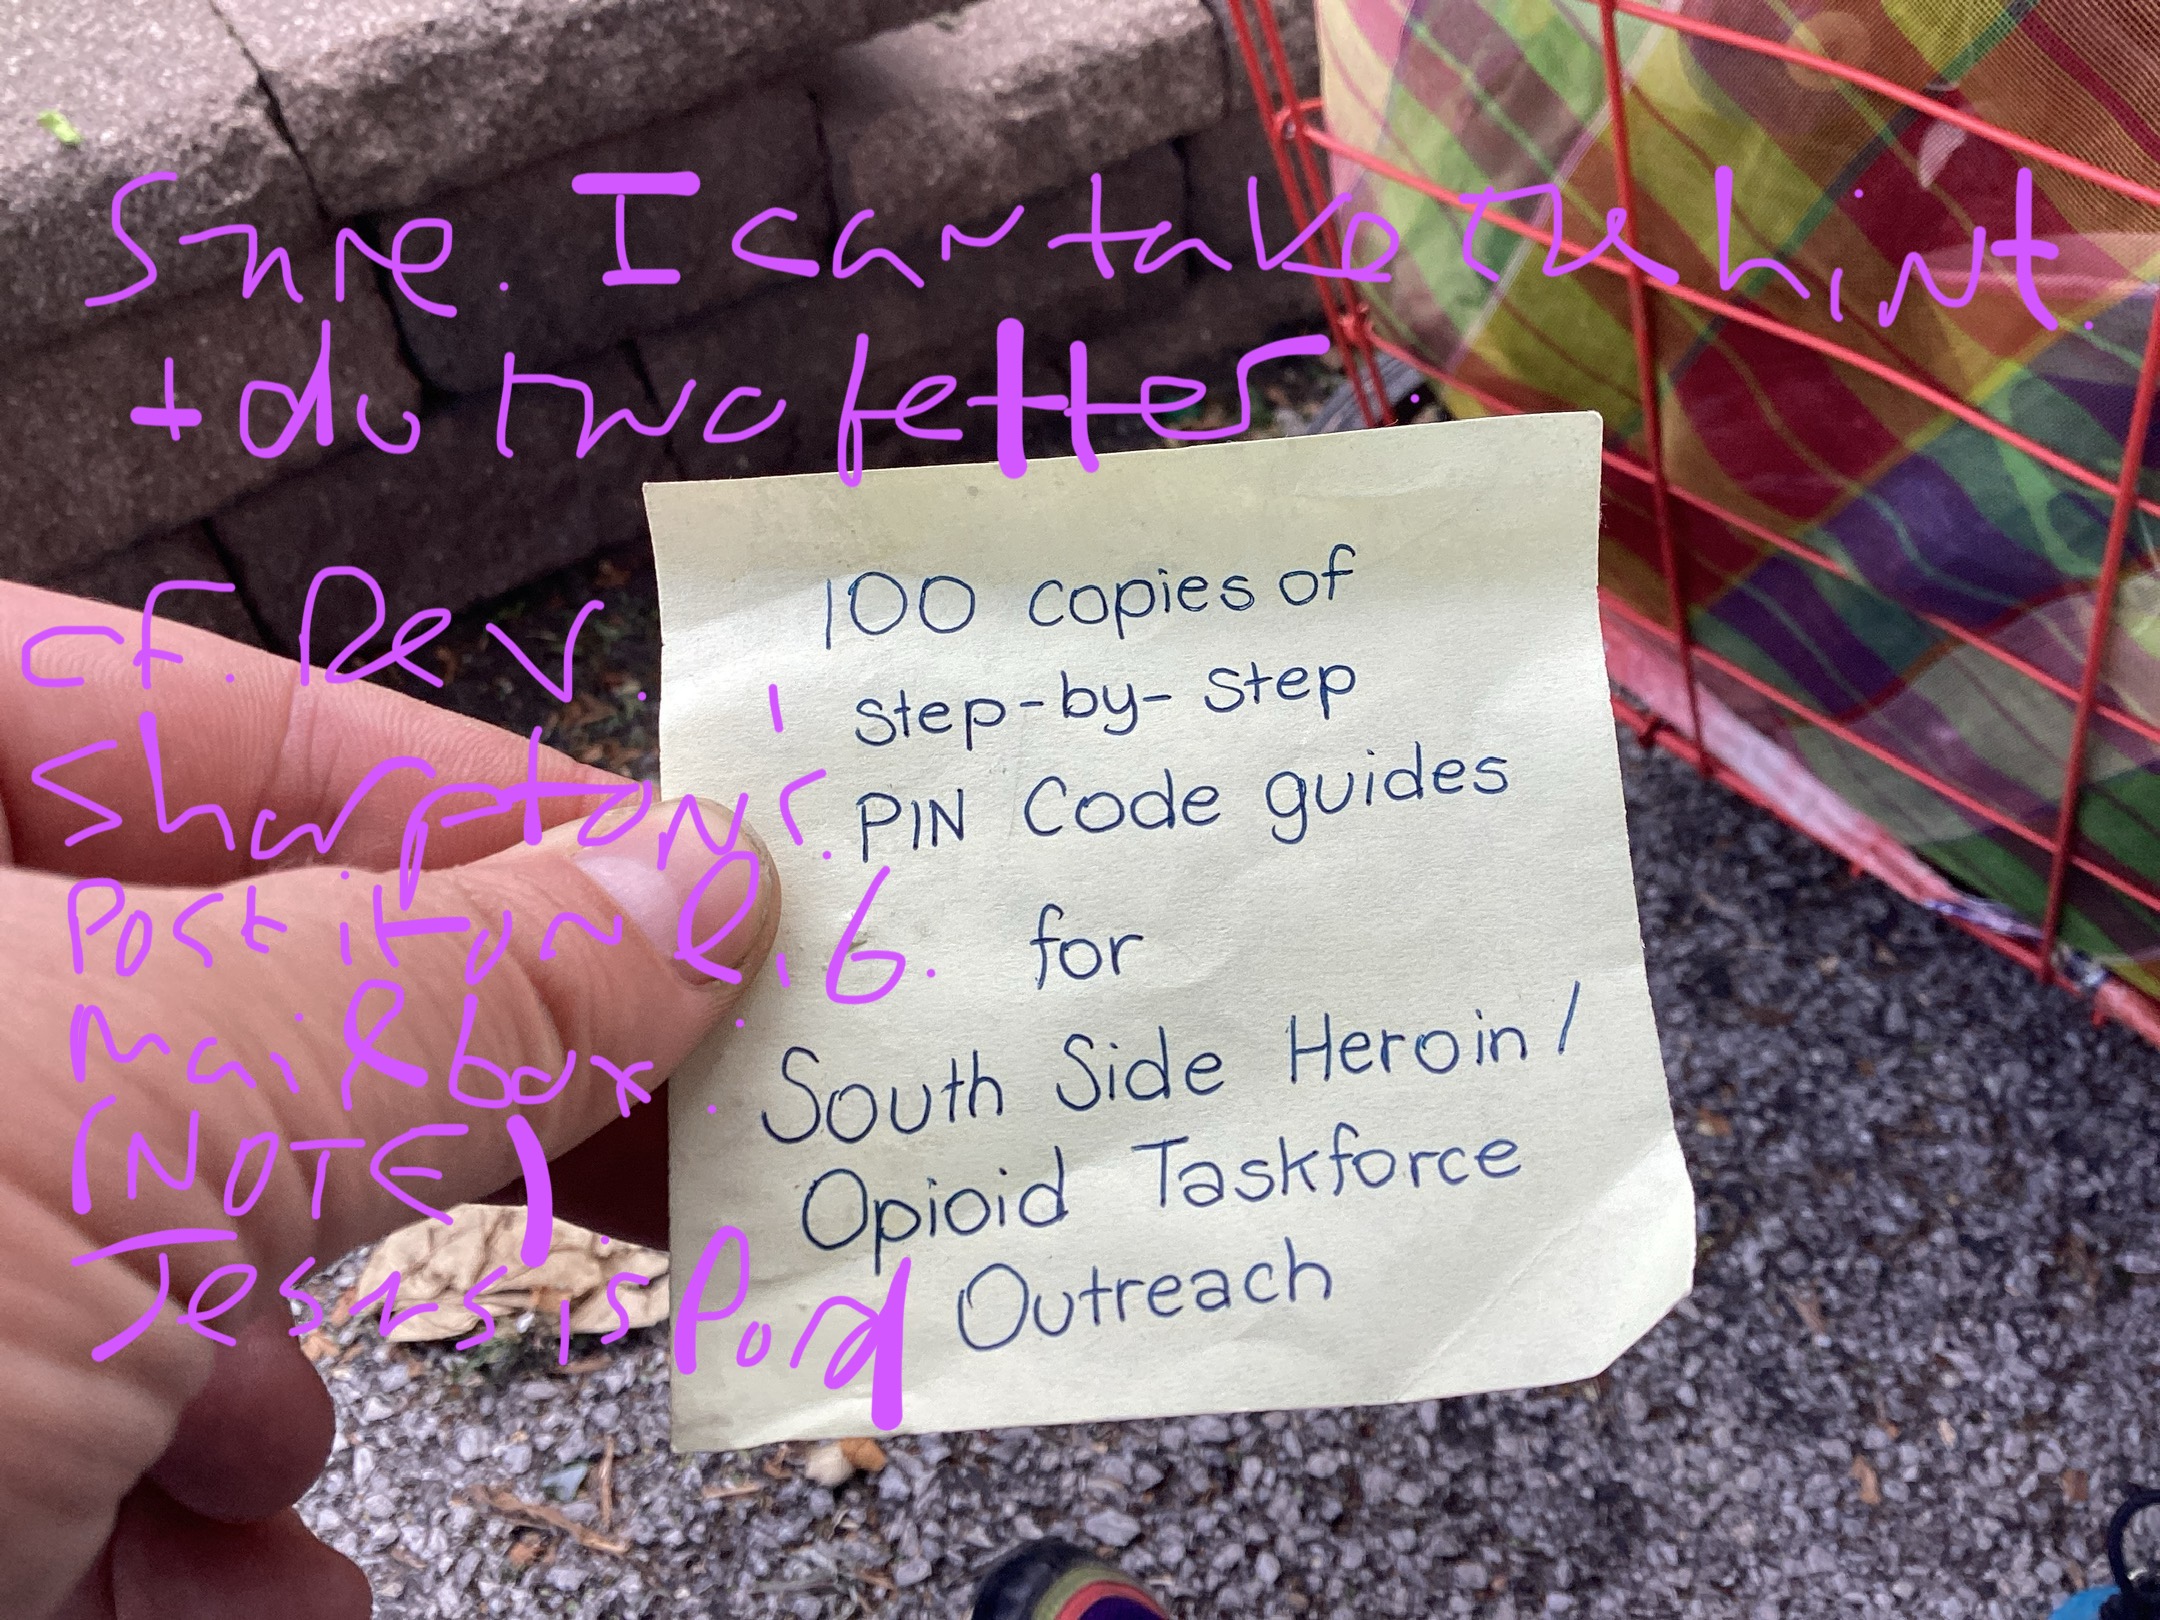 Sure. I can take the hint.
+ do two fetter.
cf. Rev.
Sharpton's.
Post it on l.6.
mailbox.
(NOTE).
Jesus is Lord
100 copies of
step-by-step
PIN Code guides
for
South Side Heroin/
Opioid Taskforce
Outreach